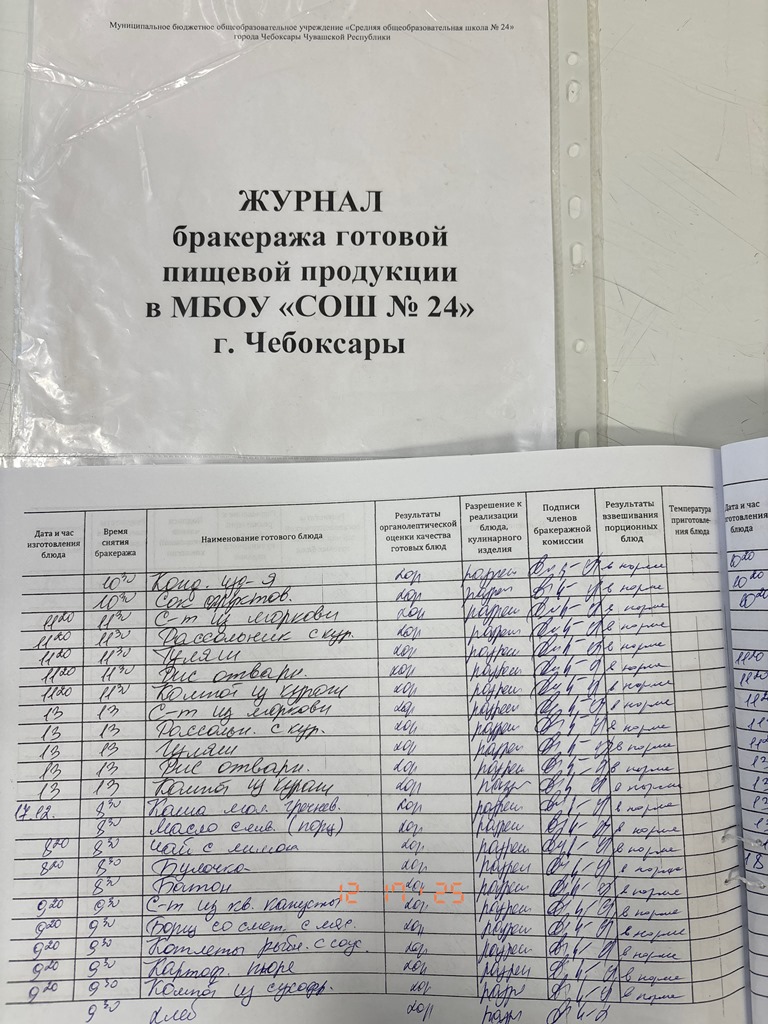 Муниципальное бюджетное общеобразовательное учреждение «Средняя общеобразовательная школа № 24»
города Чебоксары Чувашской Республики
ЖУРНАЛ
бракеража готовой
пищевой продукции
в МБОУ «СОШ № 24»
г. Чебоксары
Дата и час изготовления блюда Время снятия бракеража Наименование готового блюда Результаты органолептической оценки качества готовых блюд Разрешение к реализации блюда, кулинарного изделия Подписи членов бракеражной комиссии Результаты взвешивания порционных блюд Температура приготовле- ния блюд Дата и час
10 30 Конд. изд-я хор разреш в норме
10 30 Сок фруктов. хор разреш в норме
11 20 11 30 С-т из моркови хор разреш в норме
11 20 11 30 Рассольник с кур. хор разреш в норме
11 20 11 30 Гуляш хор разреш в норме
11 20 11 30 Рис отварн. хор разреш в норме
11 20 11 30 Компот из кураги хор разреш в норме
13 13 С-т из моркови хор разреш в норме
13 13 Рассольн. с кур. хор разреш в норме
13 13 Гуляш хор разреш в норме
13 13 Рис отварн. хор разреш в норме
13 13 Компот из кураги хор разреш в норме
17.12. 8 30 Каша мол. гречнев. хор разреш в норме
8 30 Масло слив. (порц) хор разреш в норме
8 20 8 30 Чай с лимон хор разреш в норме
8 20 8 30 Булочка хор разреш в норме
8 30 Батон хор разреш в норме
12 17 '25
9 20 9 30 С-т из кв. капусты хор разреш в норме
9 20 9 30 Борщ со смет. с мяс. хор разреш в норме
9 20 9 30 Котлеты рыбн. с соус. хор разреш в норме
9 20 9 30 Картоф. пюре хор разреш в норме
9 20 9 30 Компот из сухофр. хор разр в норме
9 30 хлеб хор разр